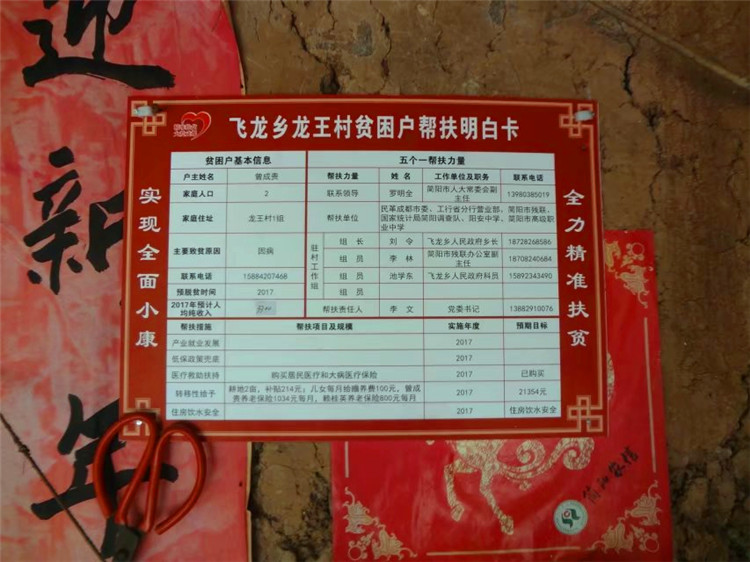 迎新年
飞龙乡龙王村贫困户帮扶明白卡
实现全面小康
全力精准扶贫
贫困户基本信息 五个一帮扶力量
户主姓名 曾成贵 帮扶力量 姓 名 工作单位及职务 联系电话
家庭人口 2 联系领导 罗明全 简阳市人大常委会副主任 13980385019
家庭住址 龙王村1组 帮扶单位 民革成都市委、工行省分行营业部、简阳市残联、
国家统计局简阳调查队、阳安中学、简阳市高级职
业中学
主要致贫原因 因病 驻村工作组 组 长 刘 令 飞龙乡人民政府乡长 18728268586
组 员 李 林 简阳市残联办公室副主任 18708240684
联系电话 15884207468 组 员 池学东 飞龙乡人民政府科员 15892343490
预脱贫时间 2017 组 员
2017年预计人均纯收入 帮扶责任人 李 文 党委书记 13882910076
帮扶措施 帮扶项目及规模 实施年度 预期目标
产业就业发展 2017
低保政策兜底 2017
医疗救助扶持 购买居民医疗和大病医疗保险 2017 已购买
转移性给予 耕地2亩，补贴214元；儿女每月给赡养费100元，曾成
贵养老保险1034元每月，赖桂英养老保险800元每月 2017 21354元
住房饮水安全 2017 住房饮水安全